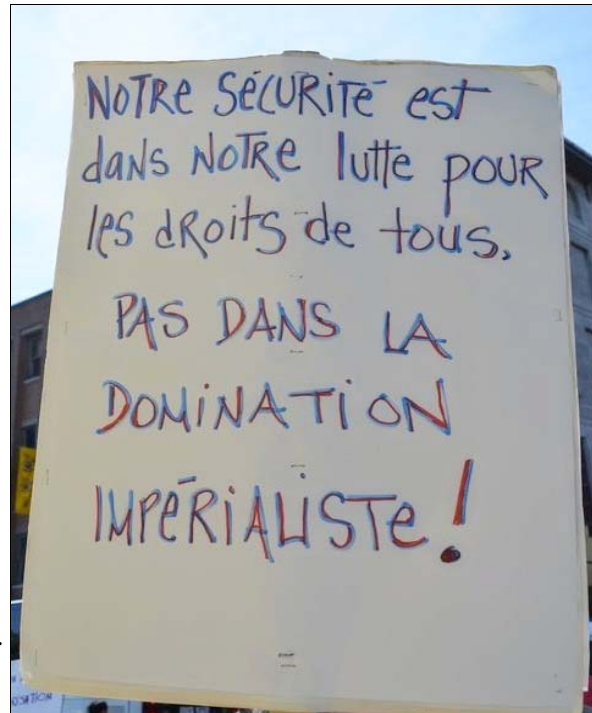 NOTRE SÉCURITÉ est
dans NOTRE lutte POUR
les dRoits de tous,
PAS DANS LA
DOMiNATiON
IMPÉRiALiSTe!